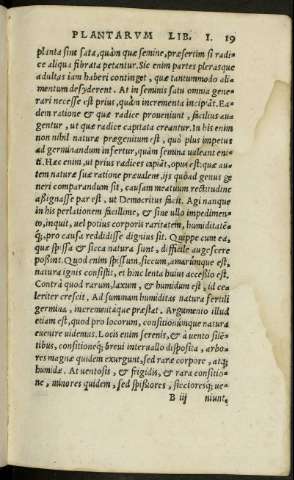 PLANTARVM LIB. I. 19
planta sint sata, quàm quæ semine, præsertim si radi-
ce aliqua fibrata petantur. Sic enim partes plerasque
adultas iam haberi continget, quæ tantummodo ali-
mentum desyderent. At in seminis satu omnia gene-
rari necesse est prius, quàm incrementa incipiāt. Ea-
dem ratione & quæ radice proveniunt, facilius au-
gentur, ut quæ radice capitata creantur. In his enim
non nihil naturæ prægenitum est, quò plus impetus
ad germinandum infertur, quàm semina valeant eni-
ti. Hæc enim, ut prius radices capiāt, opus est: quæ au-
tem naturæ suæ ratione prævalent, ijs quòd genus ge
neri comparandum sit, causam meatuum rectitudine
aßignasse par est, ut Democritus facit. Agi nanque
in his perlationem facillime, & sine ullo impedimen-
to, inquit, vel potius corporis raritatem, humiditatē-
q;, pro causa reddidisse dignius sit. Quippe cum ea,
quæ spissa & sicca natura sunt, difficile augescere
poßint. Quod enim spissum, siccum, amarúmque est,
natura ignis consistit, et hinc lenta huius accessio est.
Contrà quod rarum, laxum, & humidum est, id ce-
leriter crescit. Ad summam humiditas natura fertili
germina, incrementáque præstat. Argumento illud
etiam est, quod pro locorum, consitionúmque natura
evenire videmus. Locis enim serenis, & à vento silē-
tibus, consitioneq; brevi intervallo disposita, arbo-
res magnæ quidem exurgunt, sed raræ corpore, atq;
humidæ. At ventosis, & frigidis, & rara consitio-
ne, minores quidem, sed spißiores, siccioresq; ve-
B iij niunt,